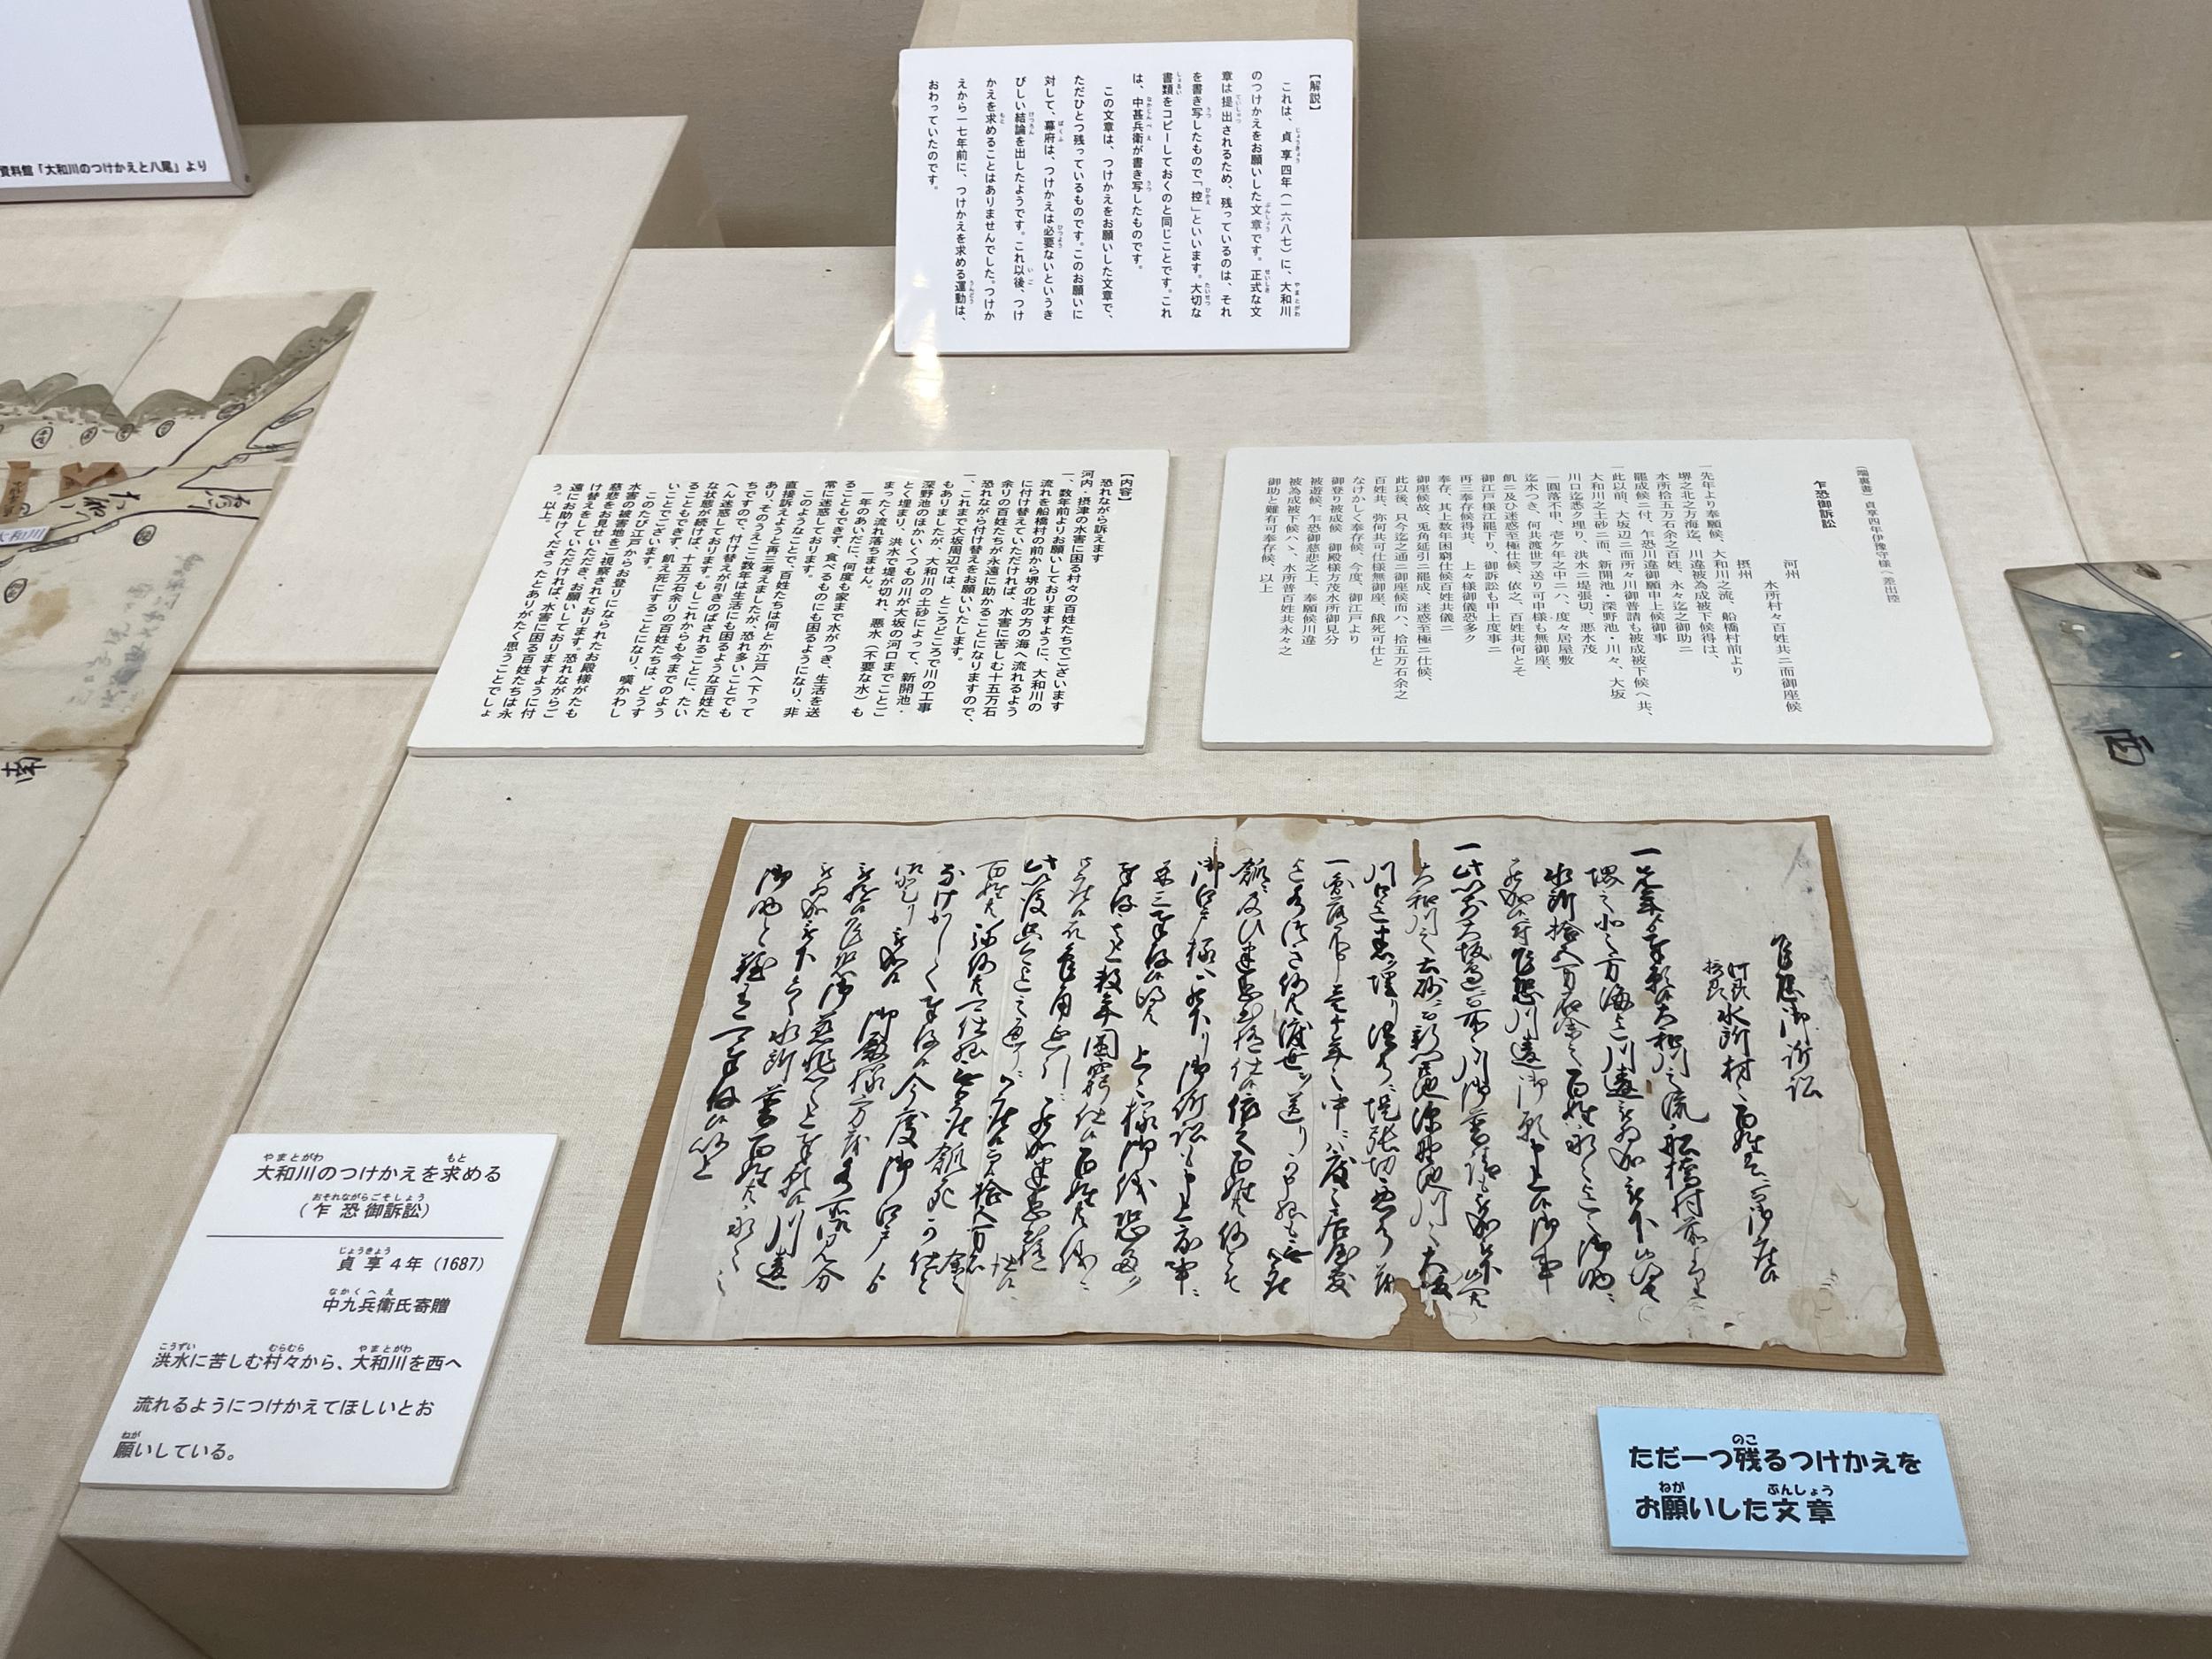 資料館「大和川のつけかえと八尾」より
【解説】
これは、貞享四年(一六八七)に、大和川
のつけかえをお願いした文章です。正式な文
章は提出されるため、残っているのは、それ
を書き写したもので「控」といいます。大切な
書類をコピーしておくのと同じことです。これ
は、中甚兵衛が書き写したものです。
この文章は、つけかえをお願いした文章で、
ただひとつ残っているものです。このお願いに
対して、幕府は、つけかえは必要ないというき
びしい結論を出したようです。これ以後、つけ
かえを求めることはありませんでした。つけか
えから一七年前に、つけかえを求める運動は、
おわっていたのです。
(端裏書)貞享四年伊豫守様へ差出控
乍恐御訴訟
河州
摂州
水所村々百姓共ニ而御座候
一先年より奉願候、大和川之流、船橋村前より
堺之北之方海迄、川違被為成被下候得は、
水所拾五万石余之百姓、永々迄之御助ニ
罷成候ニ付、乍恐川違御願申上候御事
一此以前、大坂辺ニ而所々川御普請も被成被下候へ共、
大和川之土砂ニ而、新開池・深野池・川々、大坂
川口迄悉ク埋り、洪水ニ堤張切、悪水茂
一圓落不申、壱ケ年之中ニハ、度々居屋敷
迄水つき、何共渡世ヲ送り可申様も無御座、
飢ニ及ひ迷惑至極仕候、依之、百姓共何とそ
御江戸様江罷下り、御訴訟も申上度事ニ
再三奉存候得共、上々様御儀恐多ク
奉存、其上数年困窮仕候百姓共儀ニ
御座候故、兎角延引ニ罷成、迷惑至極ニ仕候、
此以後、只今迄之通ニ御座候而ハ、拾五万石余之
百姓共、弥何共可仕様無御座、餓死可仕と
なけかしく奉存候、今度、御江戸より
御登り被成候 御殿様方茂水所御見分
被遊候、乍恐御慈悲之上、奉願候川違
被為成被下候ハヽ、水所普百姓共永々之
御助と難有可奉存候、以上
【内容】
恐れながら訴えます
河内・摂津の水害に困る村々の百姓たちでございます
一、数年前よりお願いしておりますように、大和川の
流れを船橋村の前から堺の北の方の海へ流れるよう
に付け替えていただければ、水害に苦しむ十五万石
余りの百姓たちが永遠に助かることになりますので、
恐れながら付け替えをお願いいたします。
一、これまで大坂周辺では、ところどころで川の工事
もありましたが、大和川の土砂によって、新開池・
深野池のほかいくつもの川が大坂の河口までことご
とく埋まり、洪水で堤が切れ、悪水(不要な水)も
まったく流れ落ちません。
一年のあいだに、何度も家まで水がつき、生活を送
ることもできず、食べるものにも困るようになり、非
常に迷惑しております。
このようなことで、百姓たちは何とか江戸へ下って
直接訴えようと再三考えましたが、恐れ多いことでも
あり、そのうえここ数年は生活にも困るような百姓た
ちですので、付け替えが引きのばされることに、たい
へん迷惑しております。もしこれからも今までのよう
な状態が続けば、十五万石余りの百姓たちは、どうす
ることもできず、飢え死にすることになり、嘆かわし
いことでございます。
このたび江戸からお登りになられたお殿様がたも
水害の被害地をご視察されております。恐れながらご
慈悲をお見せいただき、お願いしておりますように付
け替えをしていただければ、水害に困る百姓たちは永
遠にお助けくださったとありがたく思うことでしょ
う。以上。
乍恐御訴訟
河州
摂州
水所村々百姓共ニ而御座候
一先年より奉願候大和川之流船橋村前より
堺之北之方海迄川違被為成被下候得は
水所拾五万石余之百姓永々迄之御助ニ
罷成候ニ付乍恐川違御願申上候御事
一此以前大坂辺ニ而所々川御普請も被成被下候へ共
大和川之土砂ニ而新開池深野池川々大坂
川口迄悉ク埋り洪水ニ堤張切悪水茂
一圓落不申壱ケ年之中ニハ度々居屋敷
迄水つき何共渡世ヲ送り可申様も無御座
飢ニ及ひ迷惑至極仕候依之百姓共何とそ
御江戸様江罷下り御訴訟も申上度事ニ
再三奉存候得共上々様御儀恐多ク
奉存其上数年困窮仕候百姓共儀ニ
御座候故兎角延引ニ罷成迷惑至極ニ仕候
此以後只今迄之通ニ御座候而ハ拾五万石余之
百姓共弥何共可仕様無御座餓死可仕と
なけかしく奉存候今度御江戸より
御登り被成候御殿様方茂水所御見分
被遊候乍恐御慈悲之上奉願候川違
被為成被下候ハヽ水所普百姓共永々之
御助と難有可奉存候以上
大和川のつけかえを求める
(乍恐御訴訟)
貞享4年(1687)
中九兵衛氏寄贈
洪水に苦しむ村々から、大和川を西へ
流れるようにつけかえてほしいとお
願いしている。
ただ一つ残るつけかえを
お願いした文章
大和川
南
西